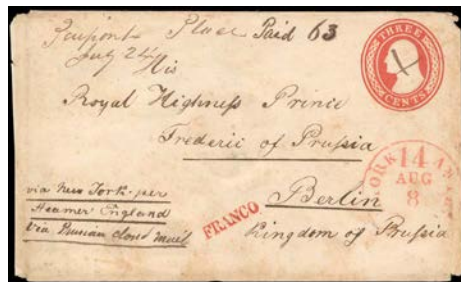 Place Paid 63
July 24
His
Royal Highness Prince
Frederic of Prussia
Berlin
Kingdom of Prussia
via New York per
Steamer England
via Prussian closed mail
FRANCO
THREE
CENTS
14
AUG
8